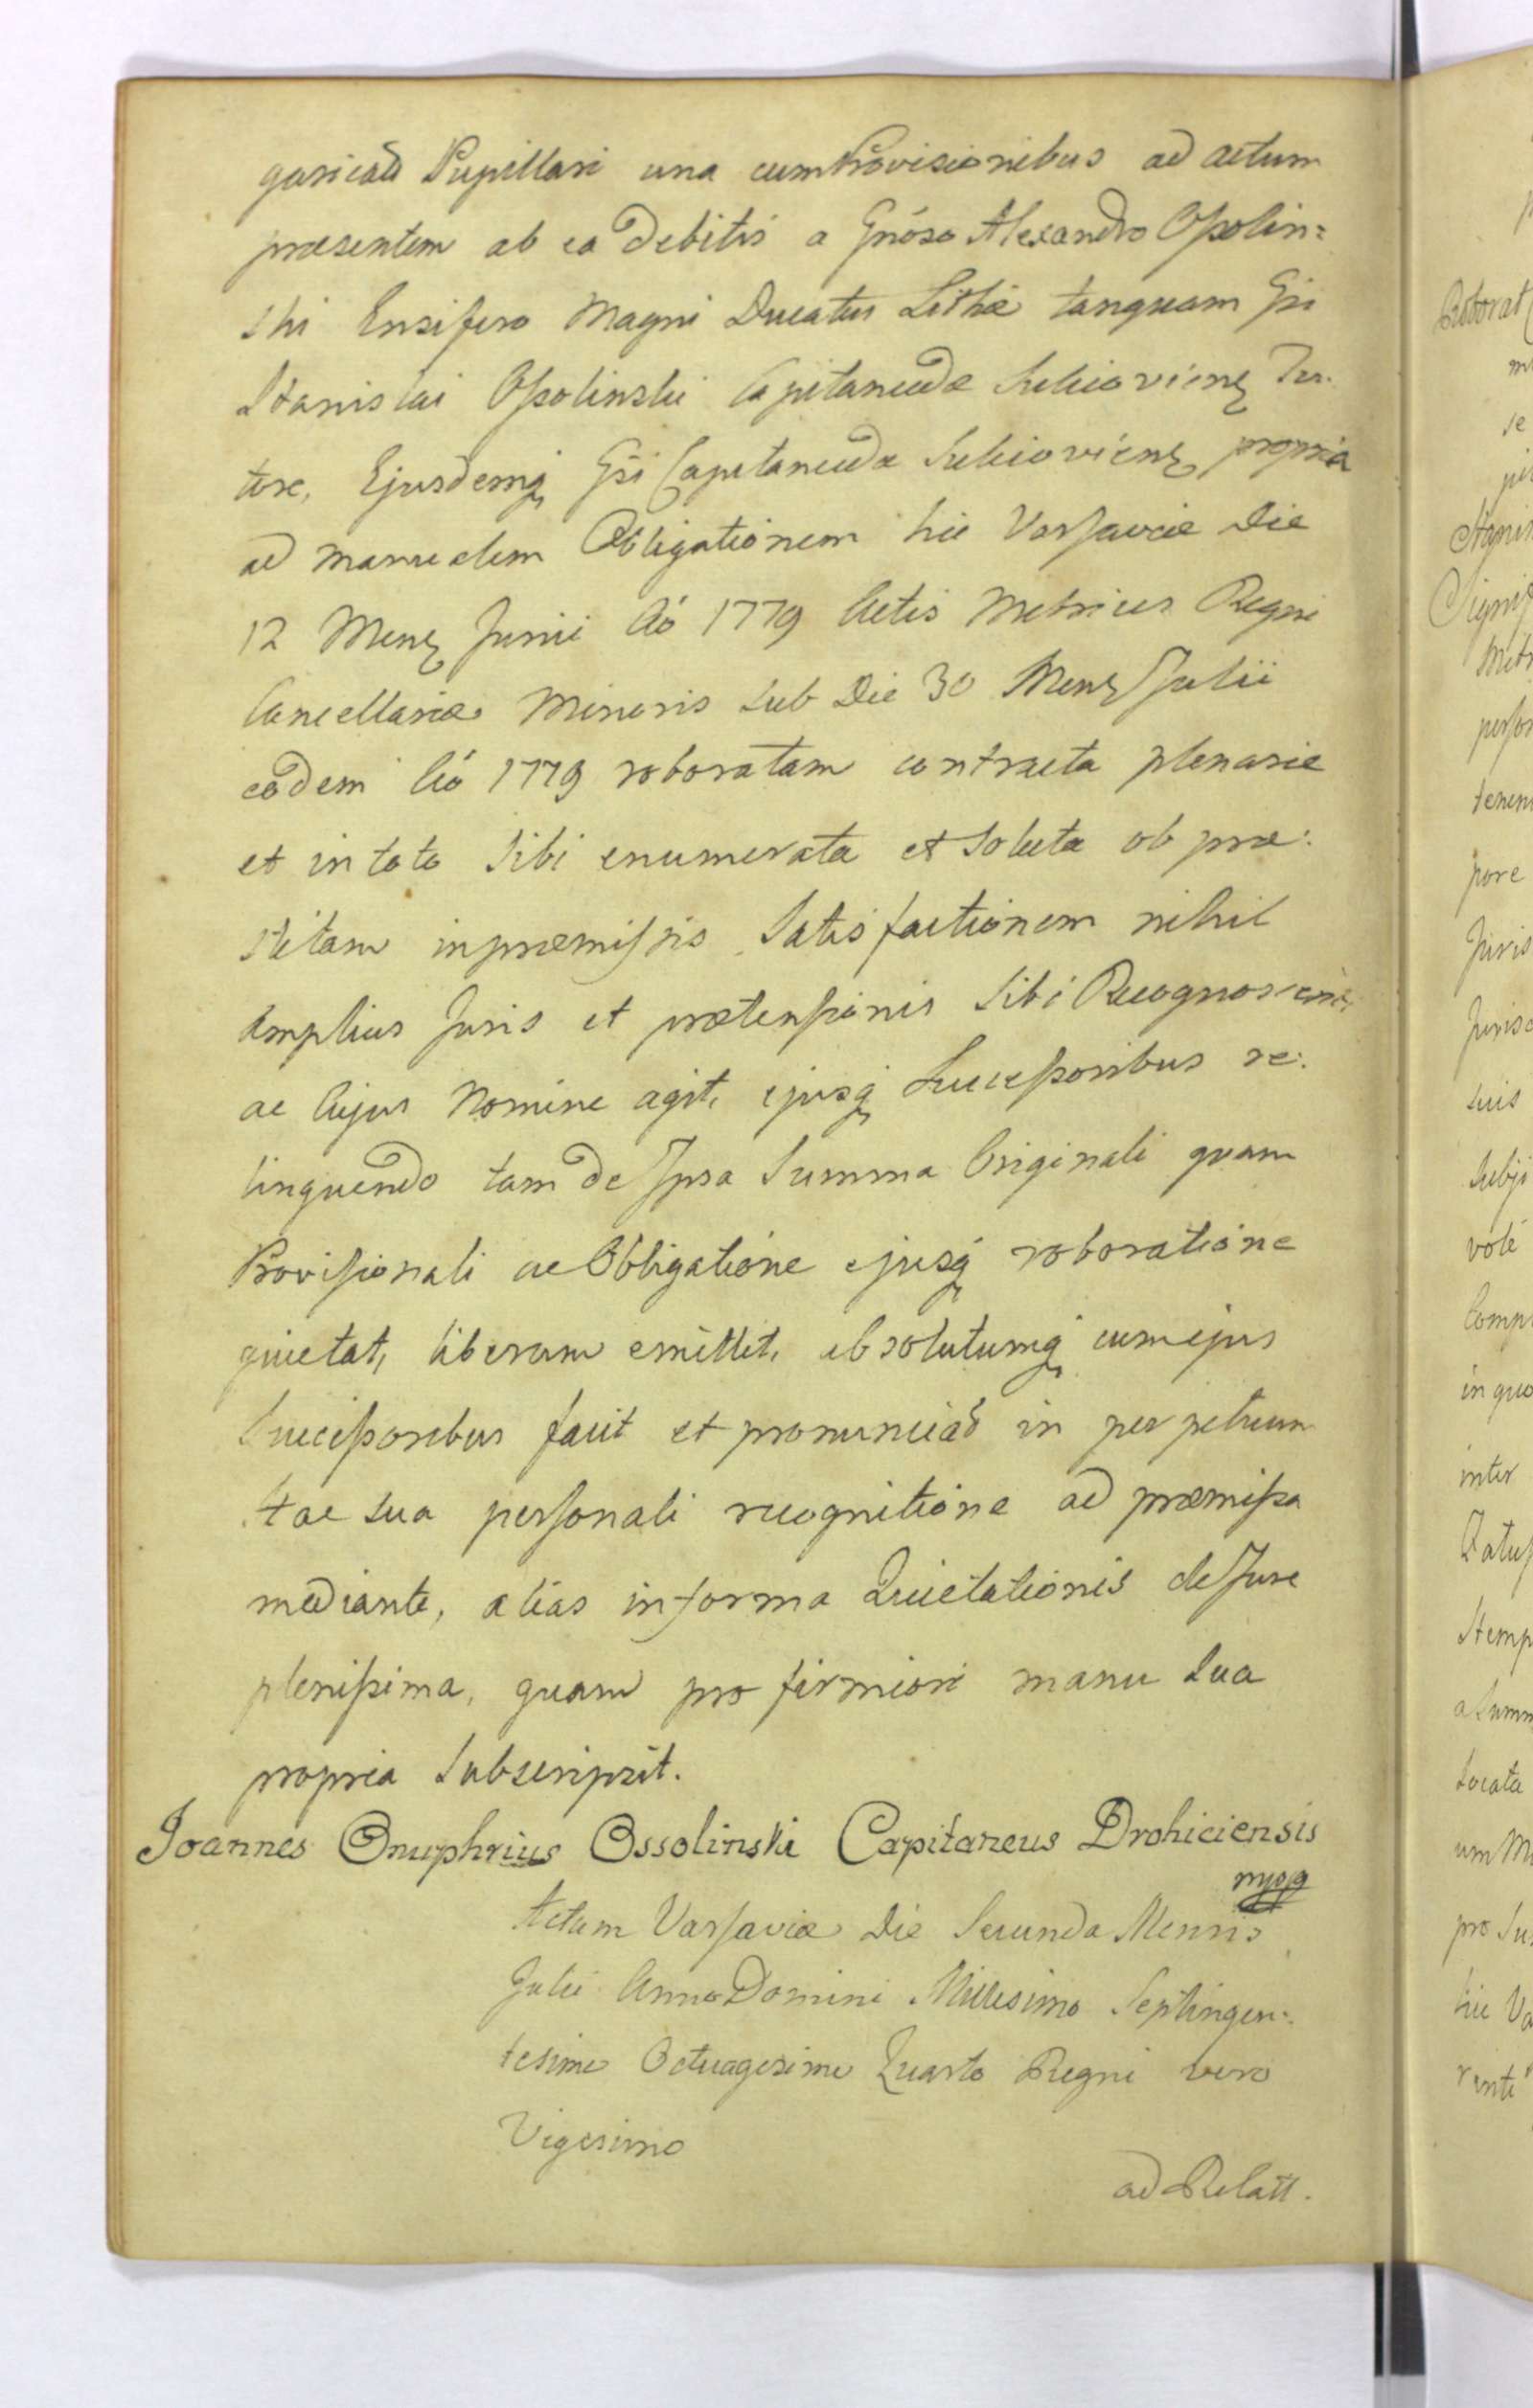 garicali Pupillari una cum Provisionibus ad actum
præsentem ab ea debitis a Gnöso Alexandro Ossolin=
ski Ensifero Magni Ducatus Lithæ tanquam Gsi
Stanislai Ossolinski Capitaneidæ Sulejoviens Tu-
tore, Ejusdemq Gsi Capitaneidæ Sulejoviens propria
ad manualem Obligationem hic Varsaviæ Die
12 Mens Junii Aö 1779 Actis Metrices Regni
Cancellariæ Minoris sub Die 30 Mens Julii
eodem Aö 1779 roboratam contracta plenarie
et in toto Sibi enumerata et soluta ob præ:
stitam in præmissis Satisfactionem nihil
Amplius Juris et prætensionis Sibi Recognoscenti
ac Cujus Nomine agit, ejusq Successoribus re:
linquendo tam de Ipsa Summa Originali quam
Provisionali ac Obligatione ejusq roboratione
quietat, liberum emittit, absolutumq cum ejus
Successoribus facit et pronunciat in perpetuum
Hac sua personali recognitione ad præmissa
mediante, alias in forma Quietationis de Jure
plenissima, quam pro firmiori manu sua
propria Subscripsit.
Joannes Onuphrius Ossolinski Capitaneus Drohiciensis
mppp
Actum Varsaviæ Die Secunda Mensis
Julii Anno Domini Millesimo Septingen=
tesimo Octuagesimo Quarto Regni vero
Vigesimo
ad Relatt.
Roborat
se
Stanis
Signif
Metr
person
tenen
pore
Juris
Jurisd
suis
Subji
vole
Comp
in quo
inter
Datus
Stemp
a Summ
Locata
um M
pro Su
hic Va